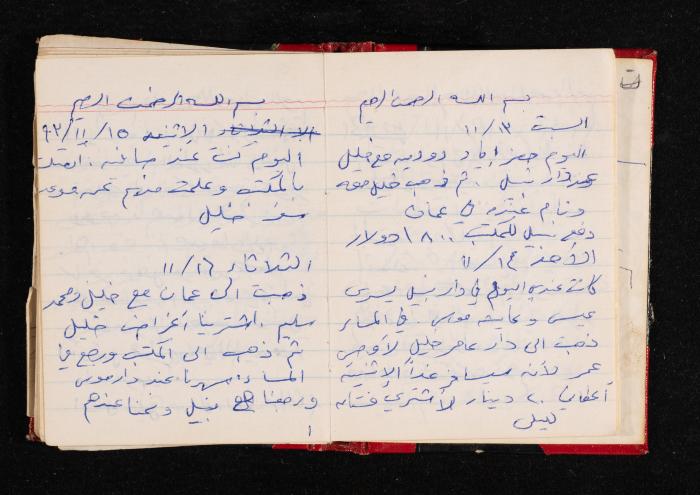 بسم الله الرحمن الرحيم
السبت ١١/١٣
اليوم حضر إياد مع خليل
عند دار نبيل. ثم ذهب خليل معه
ونام عنده في عمان
دفع نبيل للمكتب ١٨٠٠ دولار
الأحد ١١/١٤
كانت عندي اليوم في دار نبيل يسرى
عيسى وعايشه موسى. في المساء
ذهبت الى دار عامر خليل لأوصي
عمر لأنه سيسافر غداً الإثنين
أعطاني ٢٠ دينار لأشتري فستان
ليلى
بسم الله الرحمن الرحيم
الثلاثاء الإثنين ٩٣/١١/١٥
اليوم كنت عند اتصلت
بالمكتب وعلمت منهم عن موعد
سفر خليل
الثلاثاء ١١/١٦
ذهبت الى عمان مع خليل ومحمد
سليم. اشترينا أغراض خليل
ثم ذهب الى المكتب ورجع في
المساء. سهرنا عند دار موسى
ورجعنا مع نبيل ونمنا عندهم
١